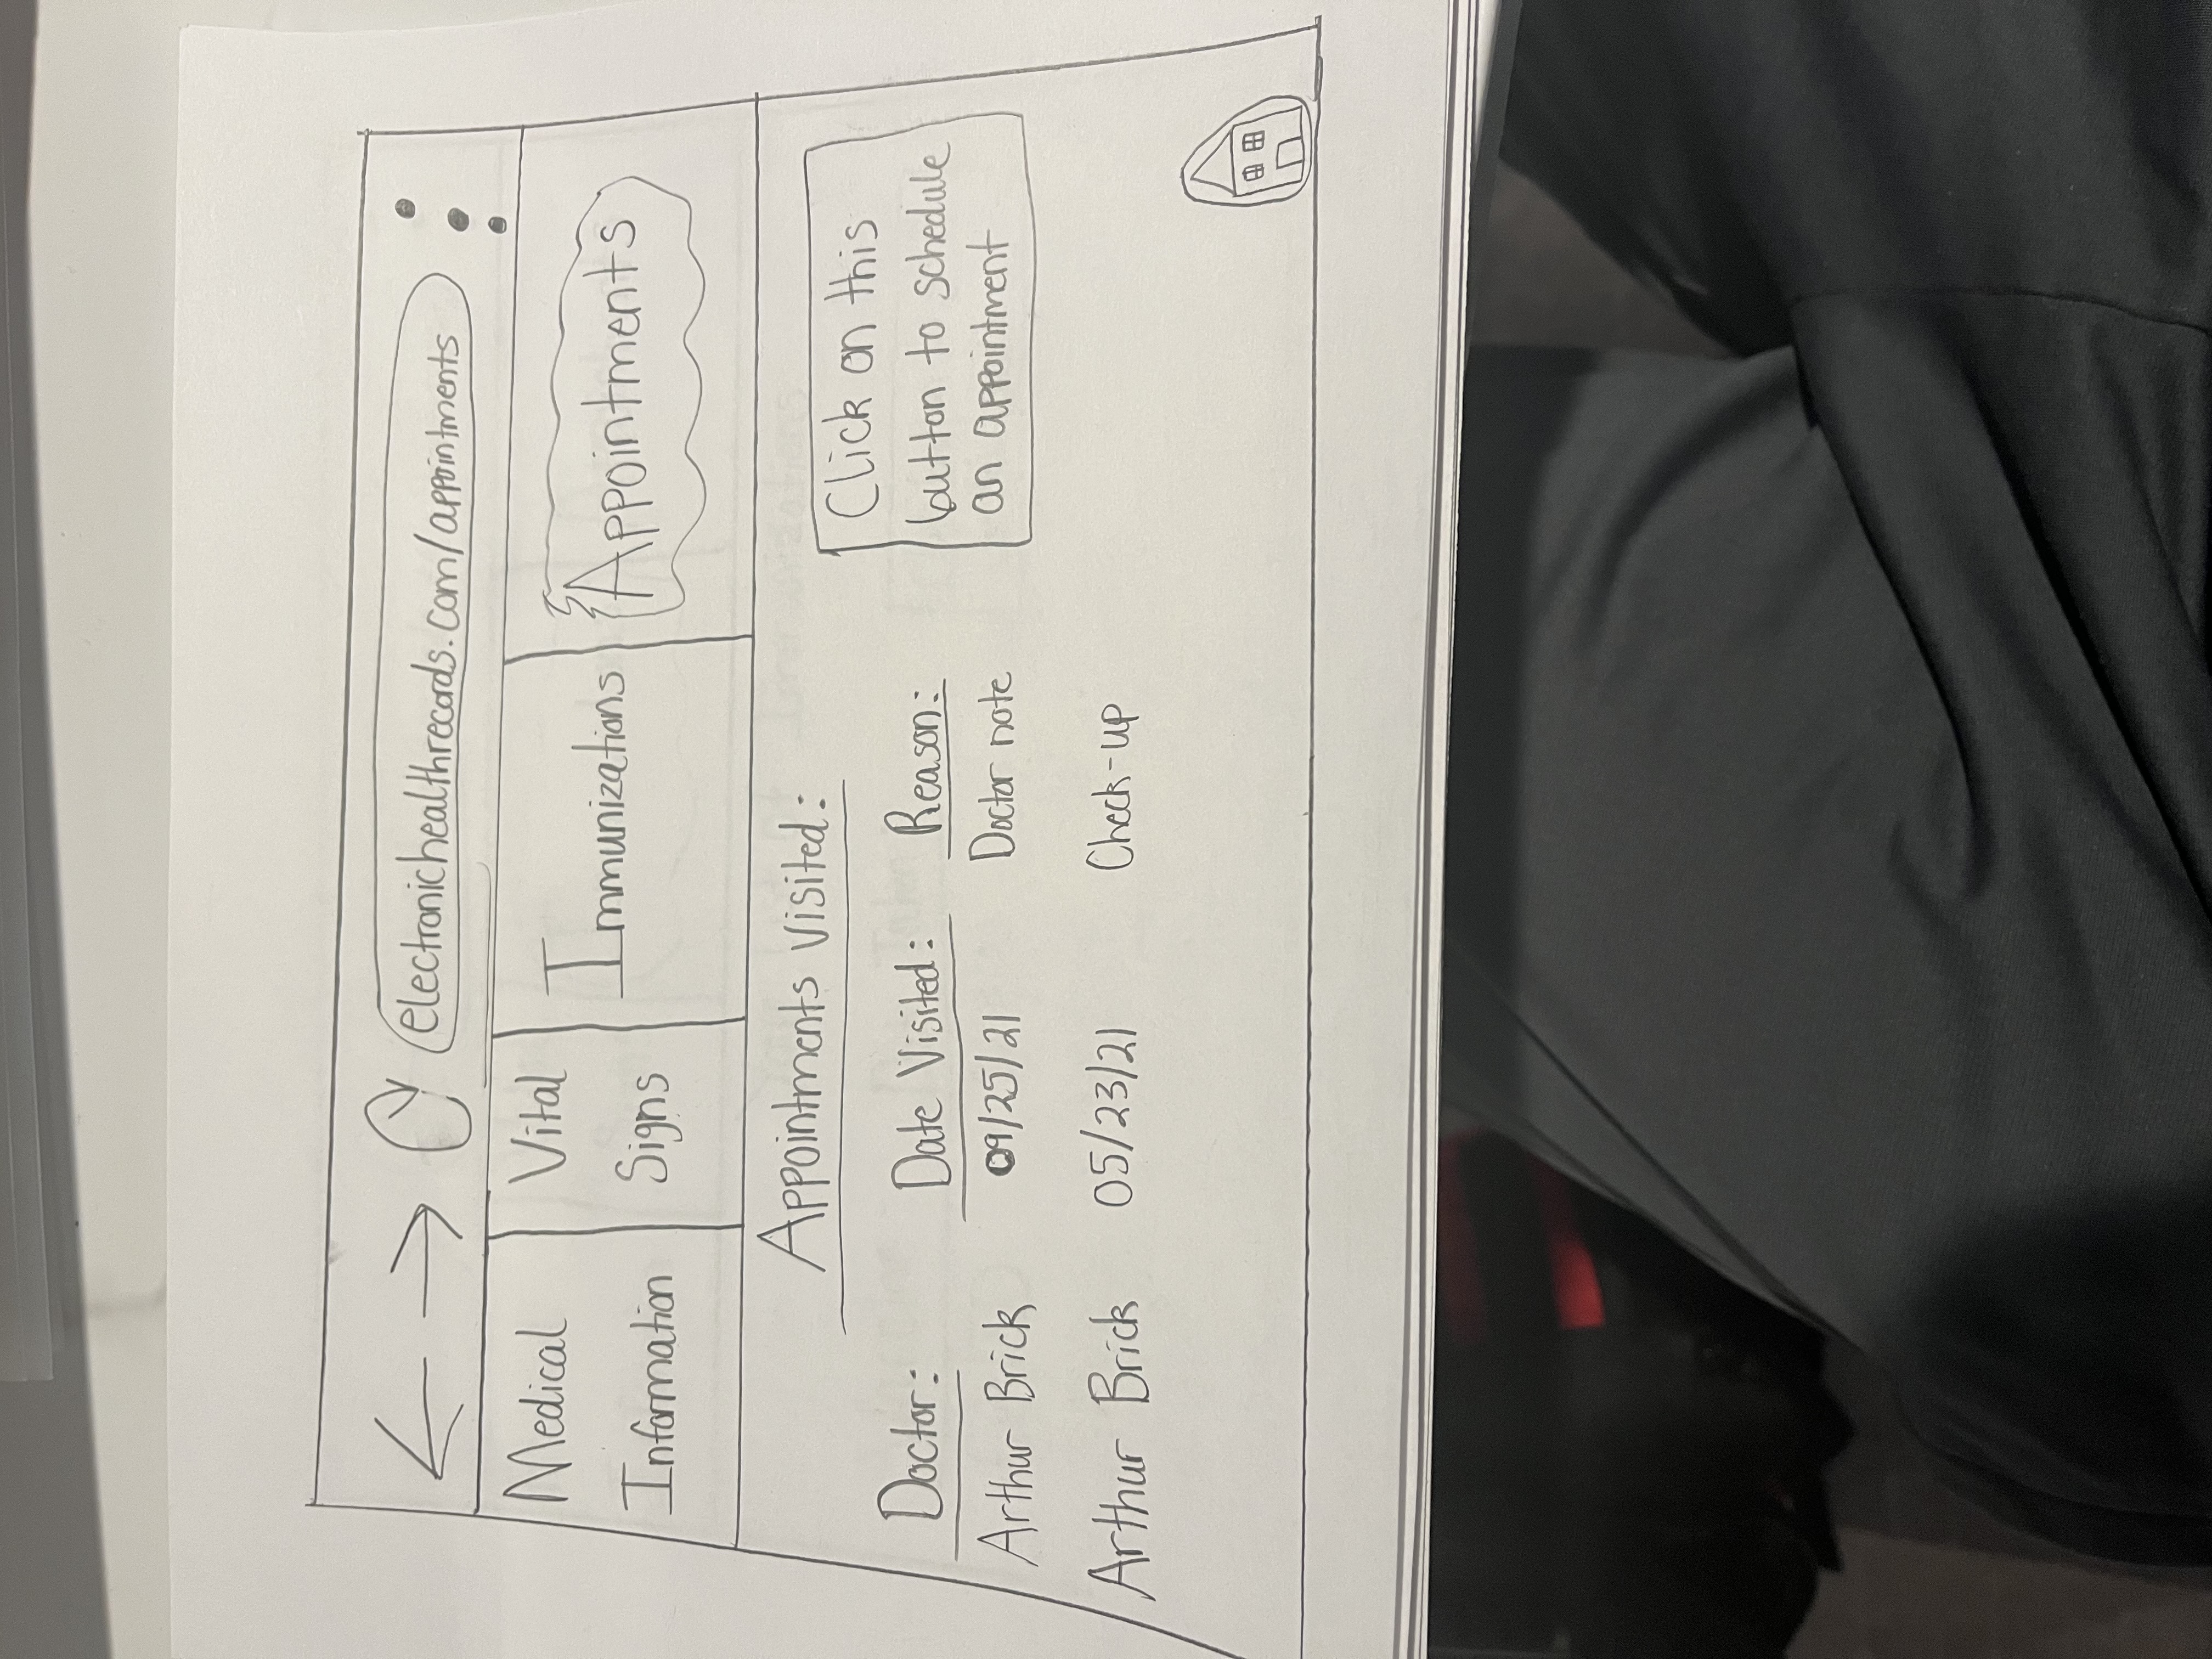 electronichealthrecords.com/appointments
Medical
Information
Vital
Signs
Immunizations
Appointments
Appointments Visited:
Click on this
button to schedule
an appointment
Doctor: Date Visited: Reason:
Arthur Brick 09/25/21 Doctor note
Arthur Brick 05/23/21 Check-up